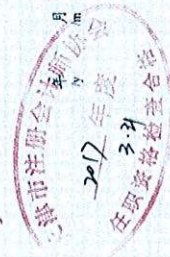 市注册会计师协会
2017年度
3.31
任职资格检查合格
年
月
/y
/m